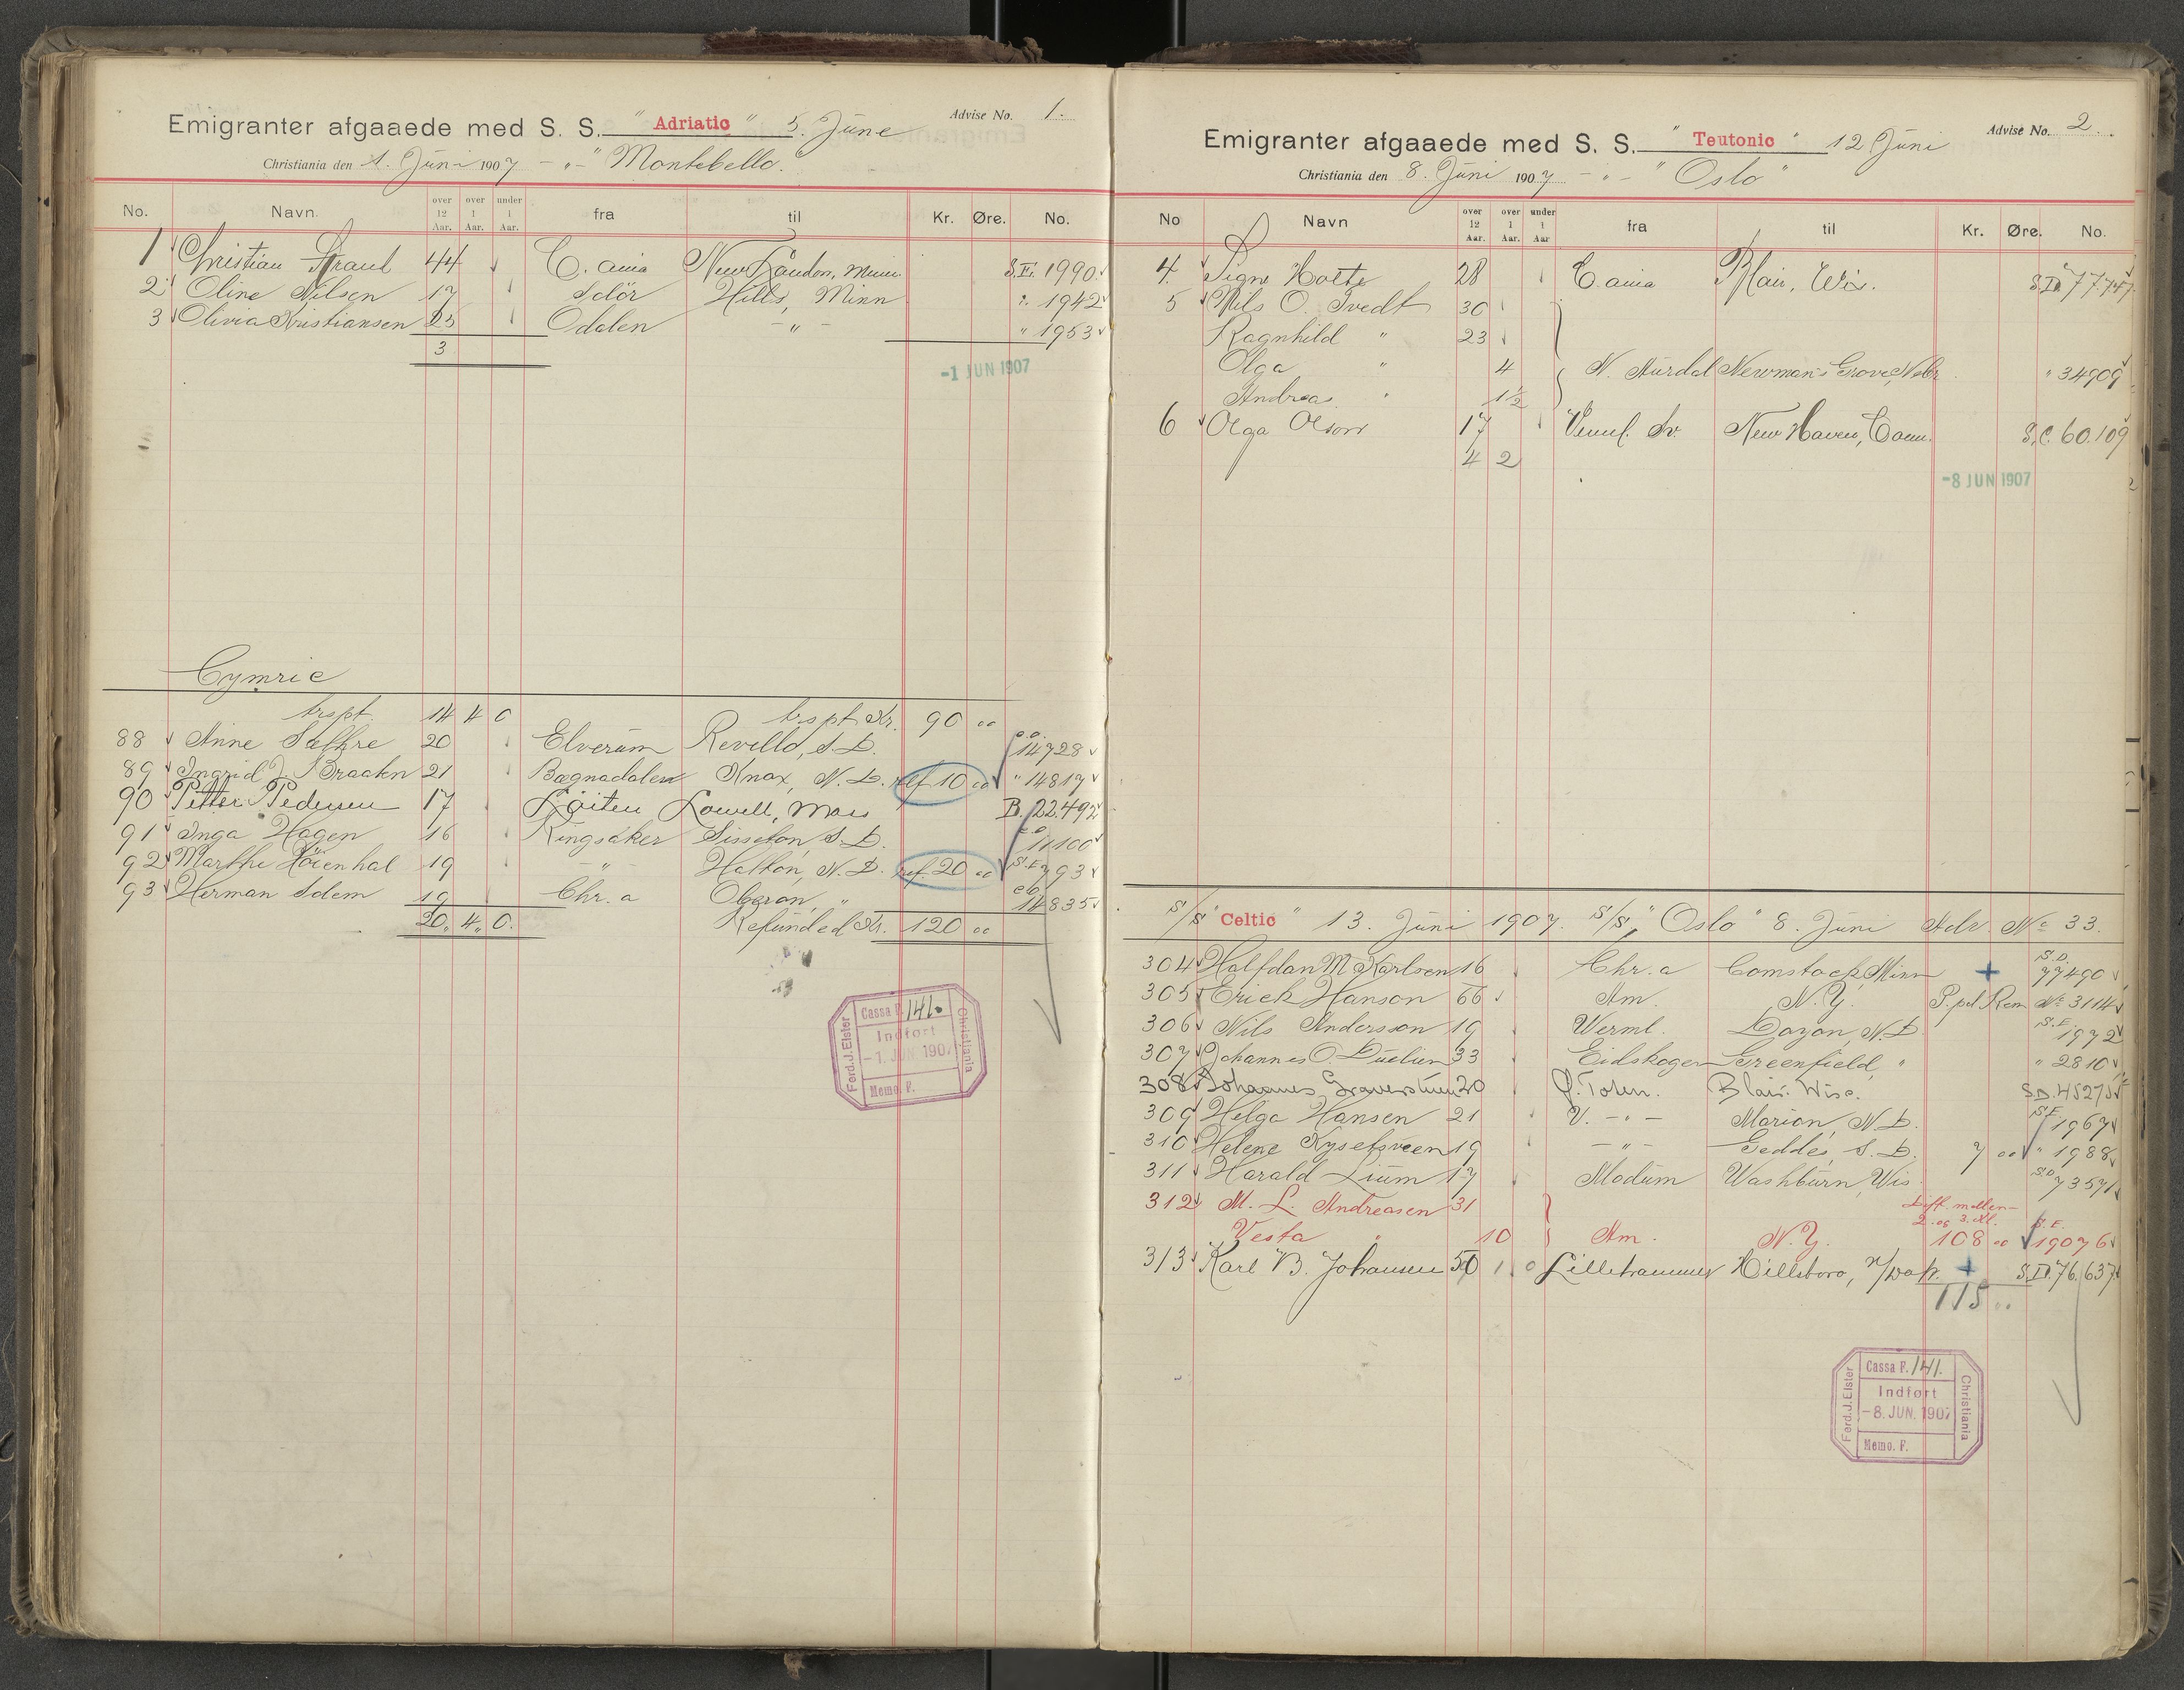 Advise No. 1.
Emigranter afgaaede med S. S. " Adriatic " 5. June
Christiania den 1. Juni 1907 - " - " Montebello.
No. Navn. over 12 Aar. over 1 Aar. under 1 Aar. fra til Kr. Øre. No.
1 Christian 44 C.ania New London, Minn S.E. 1990
2 Oline Nilsen 17 Solör Hills, Minn " 1942
3 Olivia Kristiansen 25 Odalen - " - " 1953
3
-1 JUN 1907
Cymric
trspt. 14 4 0 trspt Kr. 90 00
88 Anne Sæthre 20 Elverum Revillo, S.D. 14728
89 Ingrid J. Braaten 21 Bægnadalen Knox, N.D. ref. 10 00 " 14817
90 Petter Pedersen 17 Löiten Lowell, Mass B. 22.492
91 Inga Hagen 16 Ringsaker Sisseton S.D. 11100
92 Marthe 19 - " - Hatton, N.D. ref. 20 00 S.E. 793
93 Herman Solem 19 Chr.a Oberon, " 14835
20. 4. 0. Refunded Kr. 120 00
Ferd. J. Elster
Cassa F. 141.
Indført
-1. JUN 1907
Memo. F.
Christiania
Advise No. 2.
Emigranter afgaaede med S. S. " Teutonic " 12 Juni
Christiania den 8. Juni 1907 - " - " Oslo "
No Navn over 12 Aar. over 1 Aar. under 1 Aar fra til Kr. Øre. No.
4. Signe Hotte 28 C.ania Blair, Wis. S.D. 77.747
5 Nils O. Tvedt 30
Ragnhild " 23
Olga " 4 N. Aurdal Newman's Grove, Nebr " 34909
Andreas " 1½
6 Olga Olson 17 New Haven, Conn. S.C. 60.109
4 2
-8 JUN 1907
S/S " Celtic " 13. Juni 1907. S/S " Oslo " 8. Juni Adv. No 33.
304 Halfdan M Karlsen 16 Chr.a Comstock, Minn + S.D. 77490
305 Erick Hanson 66 Am. N.Y. P.pd Rem No 3114
306 Nils Andersson 19 Werml. N.D. S.E. 1972
307 Johannes O. 33 Eidskogen Greenfield, " " 2810
308 Johannes 20 Ö. Toten. Blair. Wisc. S.D. 45275
309 Helga Hansen 21 V. - " - Marion, N.D. S.E. 1967
310 Helene Kyselsveen 19 - " - Geddes, S.D. 7 00 " 1988
311 Harald Lium 17 Modum Washburn, Wis S.D. 73571
312 M. L. Andreasen 31 Diff. mellem
2. og 3. Kl.
Vesta " 10 Am. N.Y. 108 00 S.E. 19076
313 Karl B. Johansen 50 1 0 Lillehammer Hillsboro, N/Dak. + S.D. 76.637
115 00
Ferd. J. Elster
Cassa F. 141.
Indført
-8. JUN. 1907
Memo. F.
Christiania